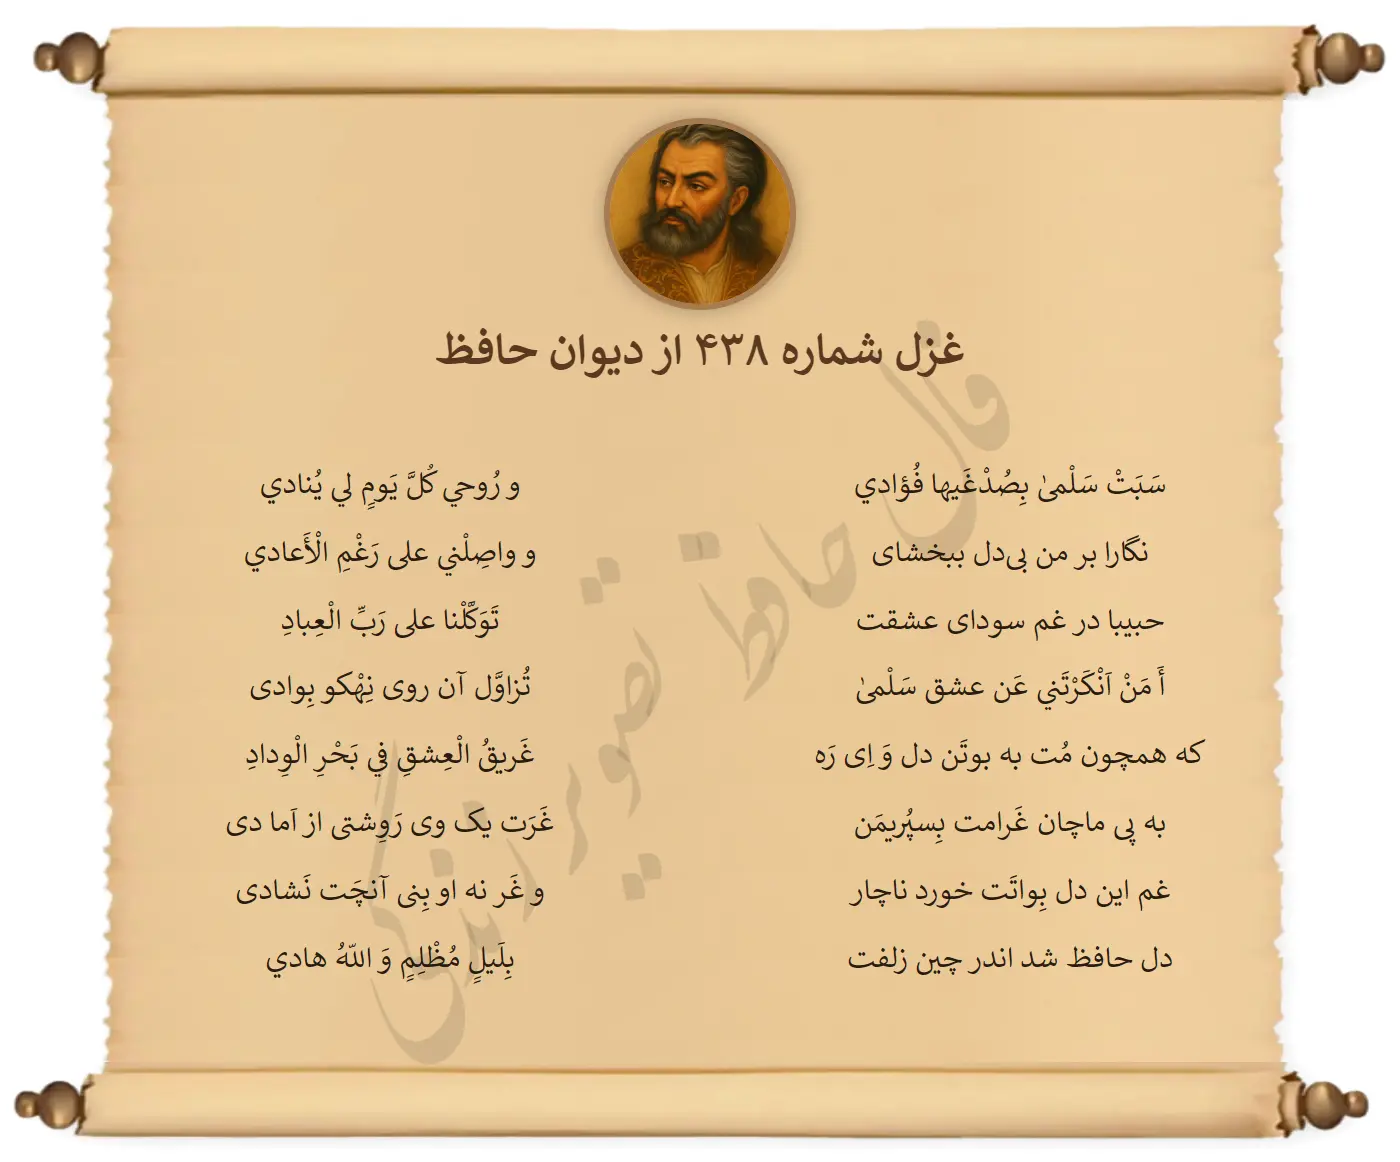 غزل شماره ۴۳۸ از دیوان حافظ
سَبَتْ سَلْمیٰ بِصُدْغَیها فُؤادي و رُوحي كُلَّ يَومٍ لي يُنادي
نگارا بر من بی‌دل ببخشای و واصِلْني علی رَغْمِ الْأَعادي
حبیبا در غم سودای عشقت تَوَكَّلْنا علی رَبِّ الْعِبادِ
أَ مَنْ اَنْكَرْتَني عَن عشق سَلْمیٰ تُزاوَّل آن روی نِهْکو بِوادی
که همچون مُت به بوتَن دل وَ اِی رَه غَریقُ الْعِشقِ في بَحْرِ الْوِدادِ
به پی ماچان غَرامت بِسپُریمَن غَرَت یک وی رَوِشتی از اَما دی
غم این دل بِواتَت خورد ناچار و غَر نه او بِنی آنچَت نَشادی
دل حافظ شد اندر چین زلفت بِلَیلٍ مُظْلِمٍ وَ اللّهُ هادي
فال حافظ تصویر زندگی